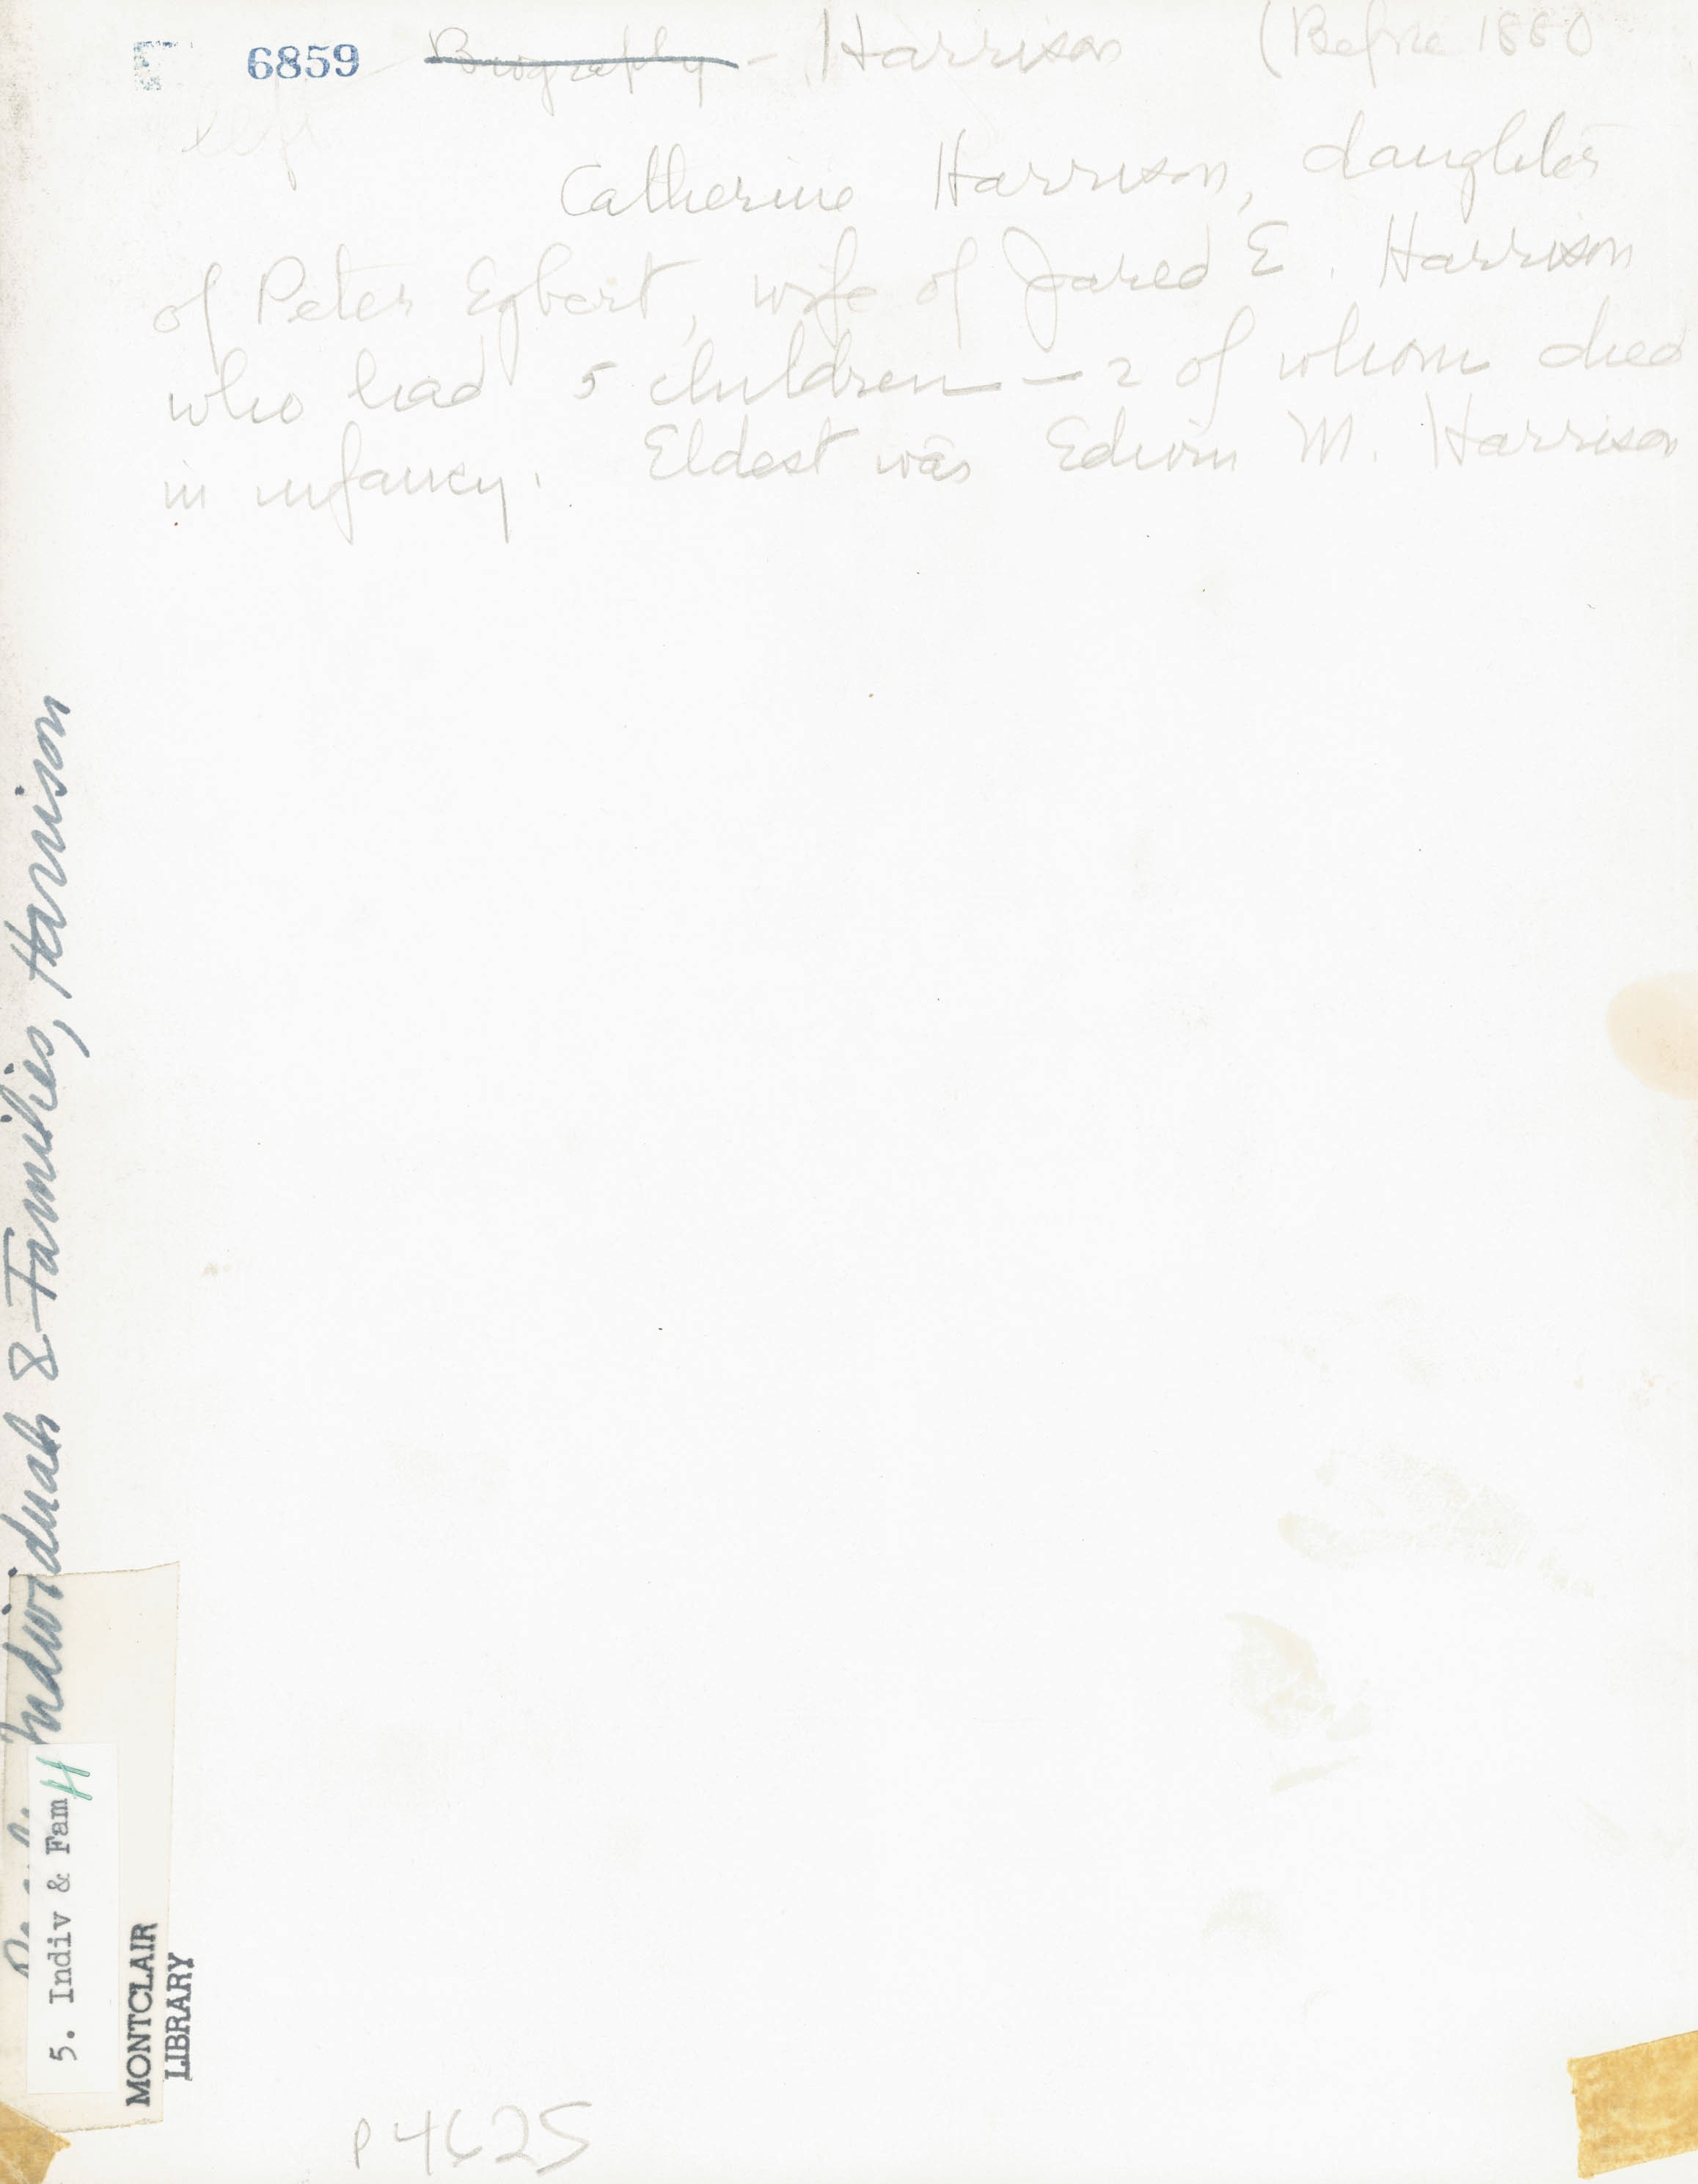 6859 Biography - Harrison (Before 1880
Catherine Harrison, daughter
of Peter Egbert, wife of Jared E. Harrison
who had 5 children - 2 of whom died
in infancy. Eldest was Edwin M. Harrison
Individuals & Families, Harrison
5. Indiv & Fam H
MONTCLAIR
LIBRARY
P4625